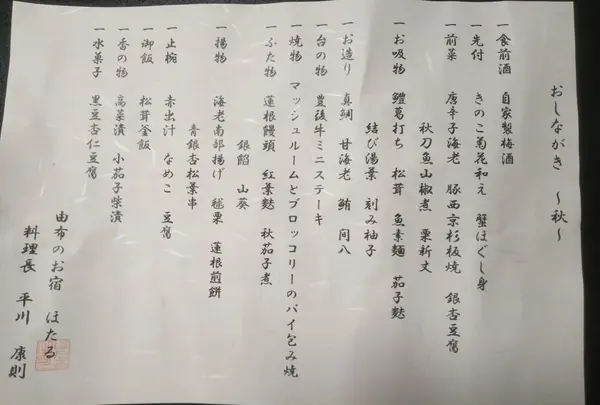 おしながき 〜秋〜
一食前酒 自家製梅酒
一先付 きのこ菊花和え 蟹ほぐし身
一前菜 唐辛子海老 豚西京杉板焼 銀杏豆腐
秋刀魚山椒煮 栗新丈
一お吸物 鱧葛打ち 松茸 魚素麺 茄子麩
結び湯葉 刻み柚子
一お造り 真鯛 甘海老 鮪 間八
一台の物 豊後牛ミニステーキ
一焼物 マッシュルームとブロッコリーのパイ包み焼
一ふた物 蓮根饅頭 紅葉麩 秋茄子煮
銀餡 山葵
一揚物 海老南部揚げ 毬栗 蓮根煎餅
青銀杏松葉串
一止椀 赤出汁 なめこ 豆腐
一御飯 松茸釜飯
一香の物 高菜漬 小茄子柴漬
一水菓子 黒豆杏仁豆腐
由布のお宿 ほたる
料理長 平川 康則